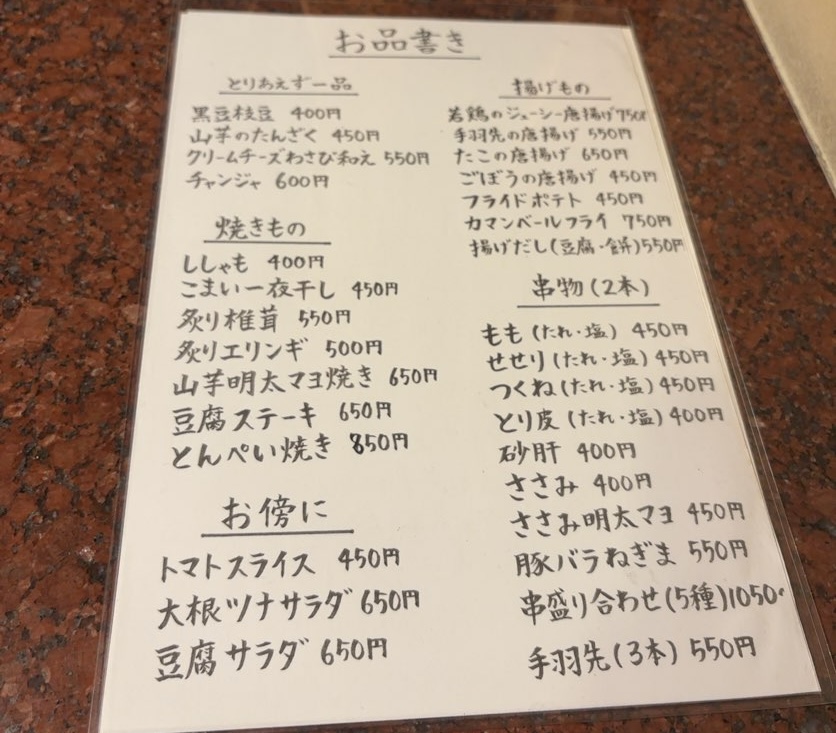 お品書き
とりあえず一品
黒豆枝豆 400円
山芋のたんざく 450円
クリームチーズわさび和え 550円
チャンジャ 600円
焼きもの
ししゃも 400円
こまい一夜干し 450円
炙り椎茸 550円
炙りエリンギ 500円
山芋明太マヨ焼き 650円
豆腐ステーキ 650円
とんぺい焼き 850円
お傍に
トマトスライス 450円
大根ツナサラダ 650円
豆腐サラダ 650円
揚げもの
若鶏のジューシー唐揚げ750円
手羽先の唐揚げ 550円
たこの唐揚げ 650円
ごぼうの唐揚げ 450円
フライドポテト 450円
カマンベールフライ 750円
揚げだし(豆腐・餅)550円
串物(2本)
もも(たれ・塩) 450円
せせり(たれ・塩)450円
つくね(たれ・塩)450円
とり皮(たれ・塩)400円
砂肝 400円
ささみ 400円
ささみ明太マヨ 450円
豚バラねぎま 550円
串盛り合わせ(5種)1050
手羽先(3本) 550円